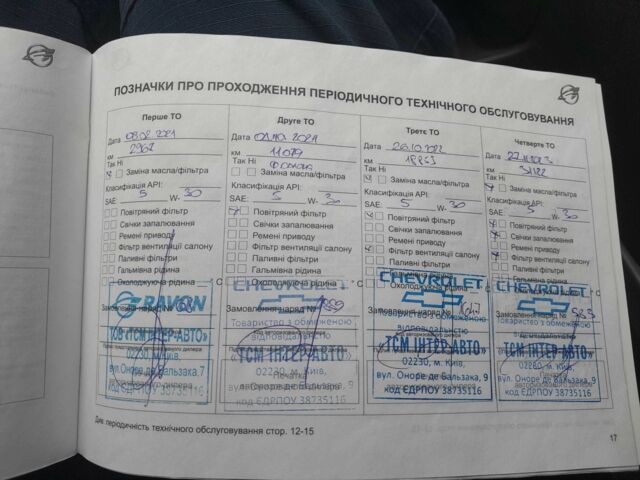 ПОЗНАЧКИ ПРО ПРОХОДЖЕННЯ ПЕРІОДИЧНОГО ТЕХНІЧНОГО ОБСЛУГОВУВАННЯ
Перше ТО
Дата 2021
км 2967
Так Ні
Заміна масла/фільтра
Класифікація API:
SAE: 5 W- 30
Повітряний фільтр
Свічки запалювання
Ремені приводу
Фільтр вентиляції салону
Паливні фільтри
Гальмівна рідина
Охолоджуюча рідина
RAVON
Замовлення наряд №
ТОВ «ТСМ ІНТЕР-АВТО»
02230, м. Київ,
вул. Оноре де Бальзака, 7
код ЄДРПОУ 38735116
Друге ТО
Дата 2021
км 11079
Так Ні
Заміна масла/фільтра
Класифікація API:
SAE: 5 W- 30
Повітряний фільтр
Свічки запалювання
Ремені приводу
Фільтр вентиляції салону
Паливні фільтри
Гальмівна рідина
Охолоджуюча рідина
CHEVROLET
Замовлення наряд №
Товариство з обмеженою
відповідальністю
«ТСМ ІНТЕР-АВТО»
02230, м. Київ,
вул. Оноре де Бальзака, 9
код ЄДРПОУ 38735116
Третє ТО
Дата 26.10.2022
км 18863
Так Ні
Заміна масла/фільтра
Класифікація API:
SAE: 5 W- 30
Повітряний фільтр
Свічки запалювання
Ремені приводу
Фільтр вентиляції салону
Паливні фільтри
Гальмівна рідина
Охолоджуюча рідина
CHEVROLET
Замовлення наряд №
Товариство з обмеженою
відповідальністю
«ТСМ ІНТЕР-АВТО»
02230, м. Київ,
вул. Оноре де Бальзака, 9
код ЄДРПОУ 38735116
Четверте ТО
Дата
км
Так Ні
Заміна масла/фільтра
Класифікація API:
SAE: 5 W- 30
Повітряний фільтр
Свічки запалювання
Ремені приводу
Фільтр вентиляції салону
Паливні фільтри
Гальмівна рідина
Охолоджуюча рідина
CHEVROLET
Замовлення наряд №
Товариство з обмеженою
відповідальністю
«ТСМ ІНТЕР-АВТО»
02230, м. Київ,
вул. Оноре де Бальзака, 9
код ЄДРПОУ 38735116
Див. періодичність технічного обслуговування стор. 12-15
17